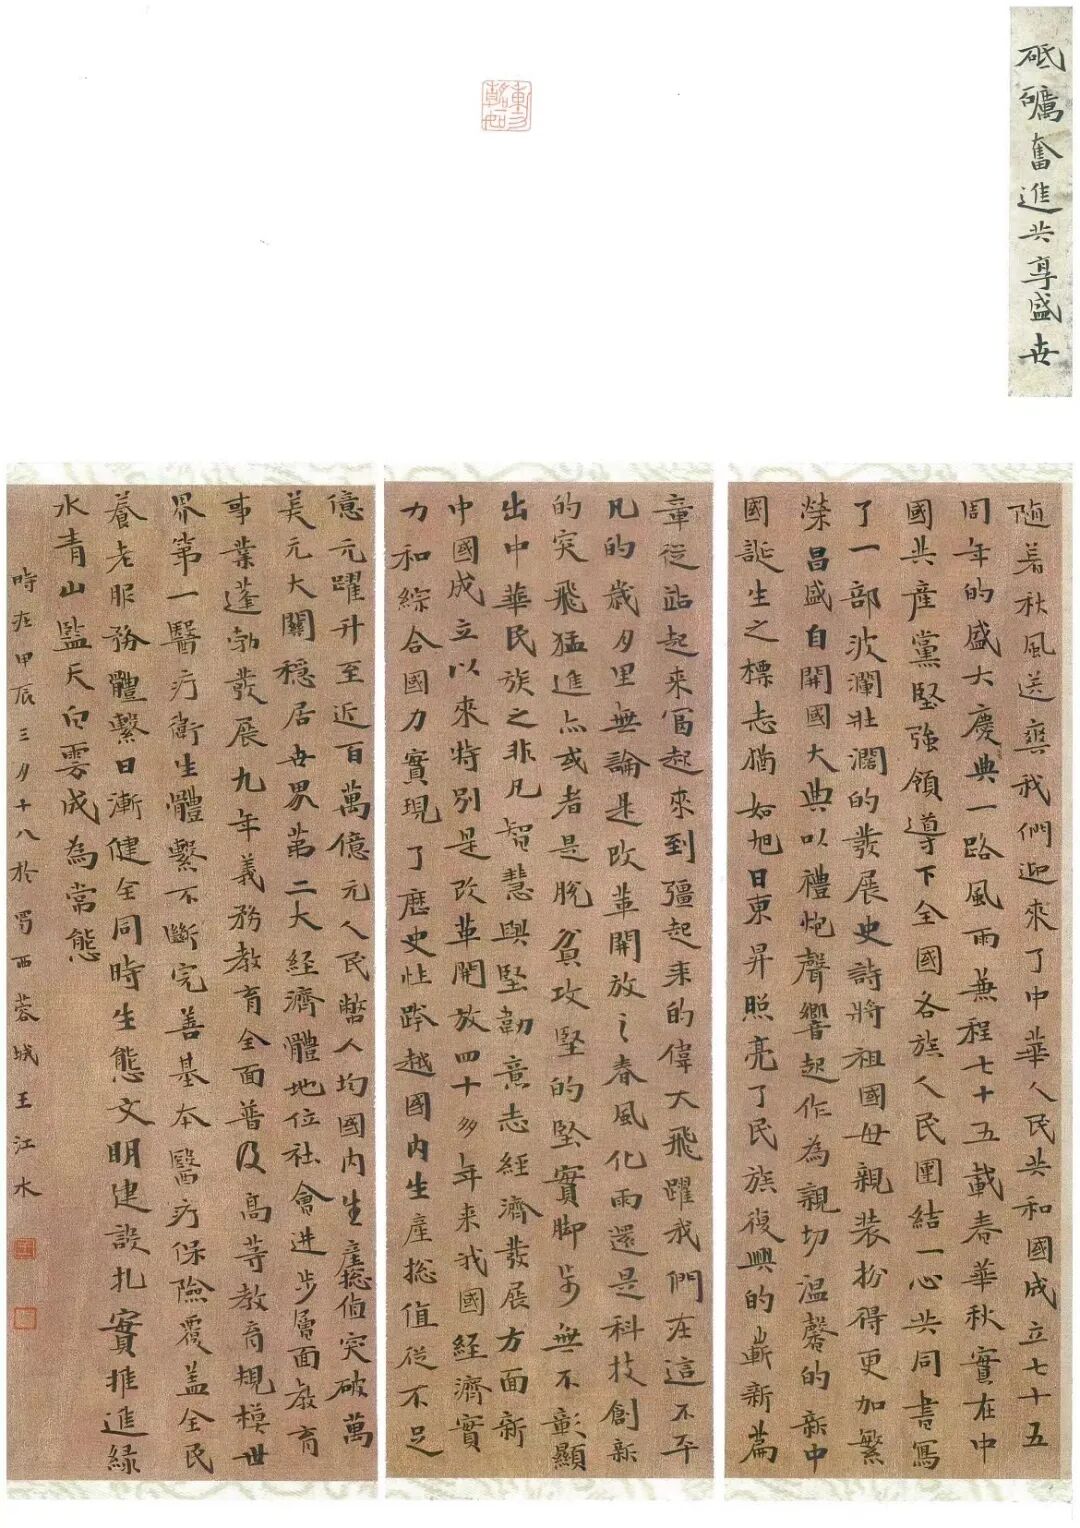 砥礪奮進共享盛世
随着秋風送爽我們迎來了中華人民共和國成立七十五
周年的盛大慶典一路風雨兼程七十五載春華秋實在中
國共產黨堅強領導下全國各族人民團結一心共同書寫
了一部波瀾壯闊的發展史詩將祖國母親装扮得更加繁
榮昌盛自開國大典以禮炮聲響起作為親切温馨的新中
國誕生之標志猶如旭日東昇照亮了民族復興的嶄新篇
章從站起來富起來到彊起来的偉大飛躍我們在這不平
凡的歲月里無論是改革開放之春風化雨還是科技創新
的突飛猛進亦或者是脫貧攻堅的堅實脚步無不彰顯
出中華民族之非凡智慧與堅韌意志經濟發展方面新
中國成立以來特别是改革開放四十多年来我國經濟實
力和綜合國力實現了歷史性跨越國内生產總值從不足
億元躍升至近百萬億元人民幣人均國内生產總值突破萬
美元大關穩居世界第二大經濟體地位社會進步層面教育
事業蓬勃發展九年義務教育全面普及高等教育規模世
界第一醫疗衛生體繫不斷完善基本醫疗保險覆盖全民
養老服務體繫日漸健全同時生態文明建設扎實推進緑
水青山藍天白雲成為常態
時在甲辰三月十八於蜀西蓉城王江水